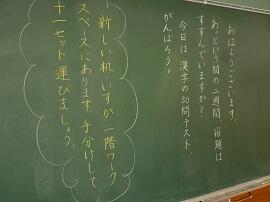 おはようございます。
あっという間の二週間、宿題は
すすんでいますか？
今日は漢字の50問テスト。
がんばろう！
新しい机、いすが一階ワーク
スペースにあります。手分けして、
十一セット運びましょう。